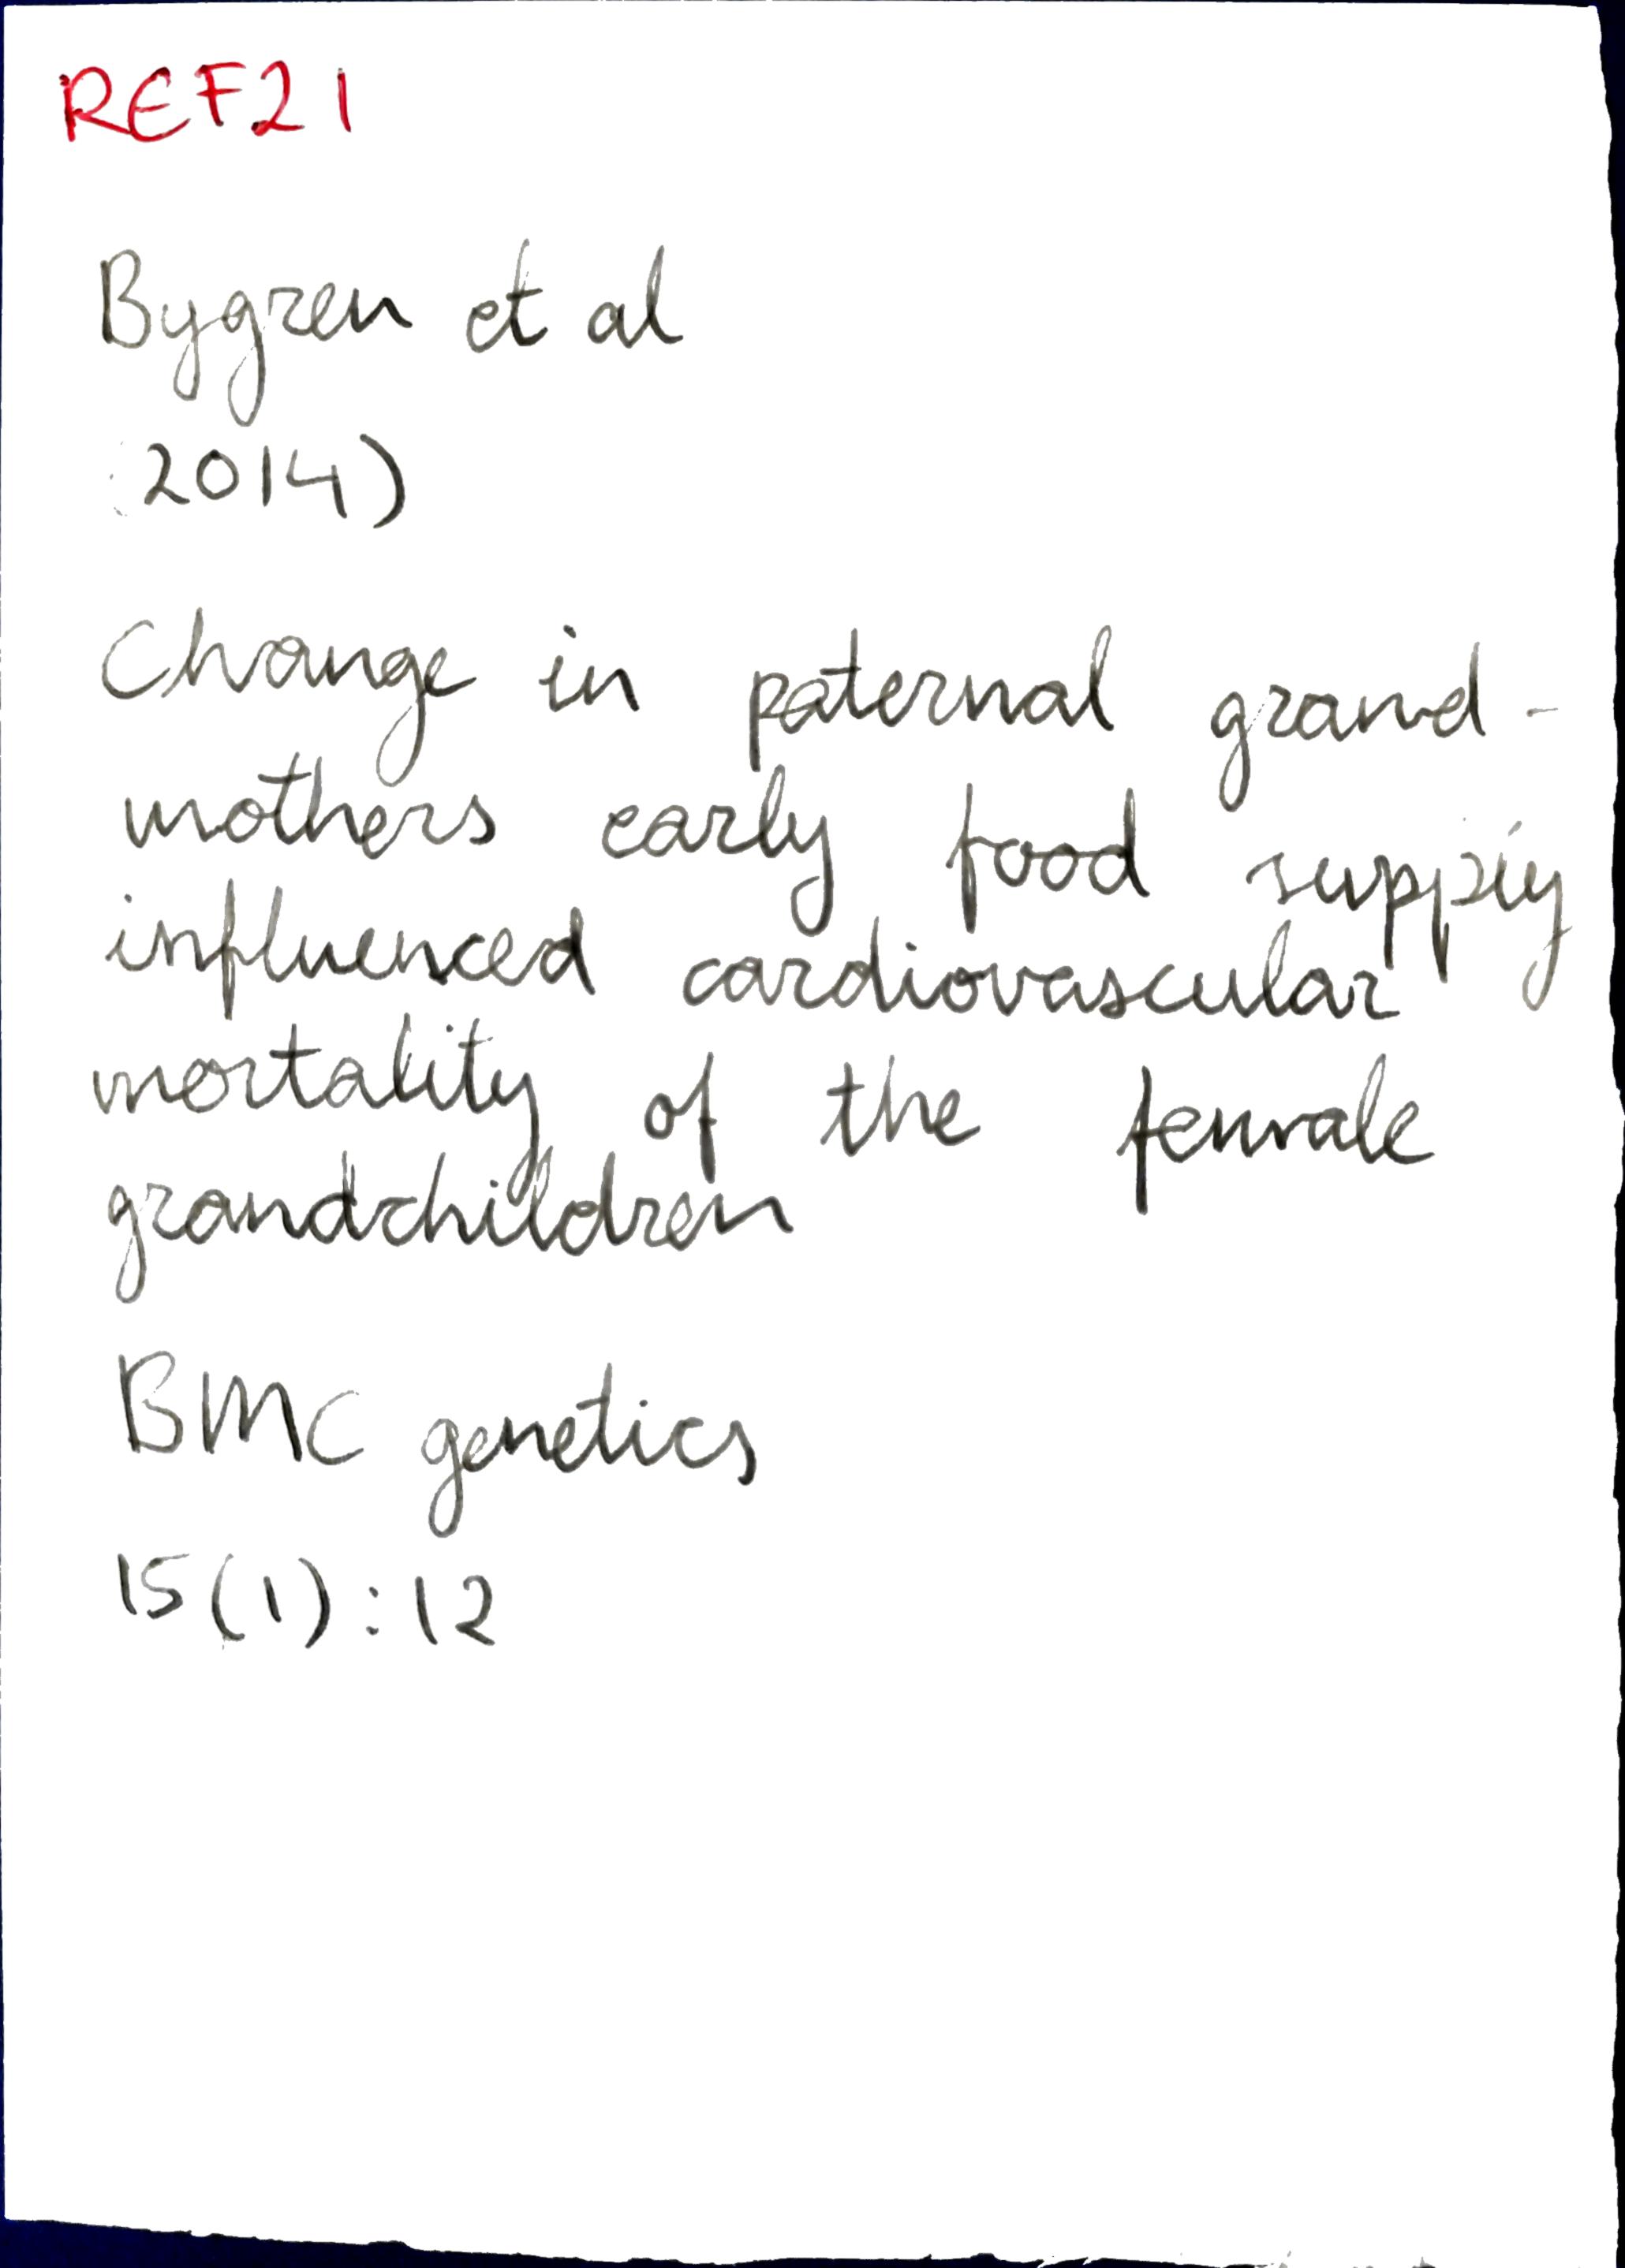 REF21
Bygren et al
(2014)
Change in paternal grand-
mothers early food supply
influenced cardiovascular
mortality of the female
grandchildren
BMC genetics
15(1):12